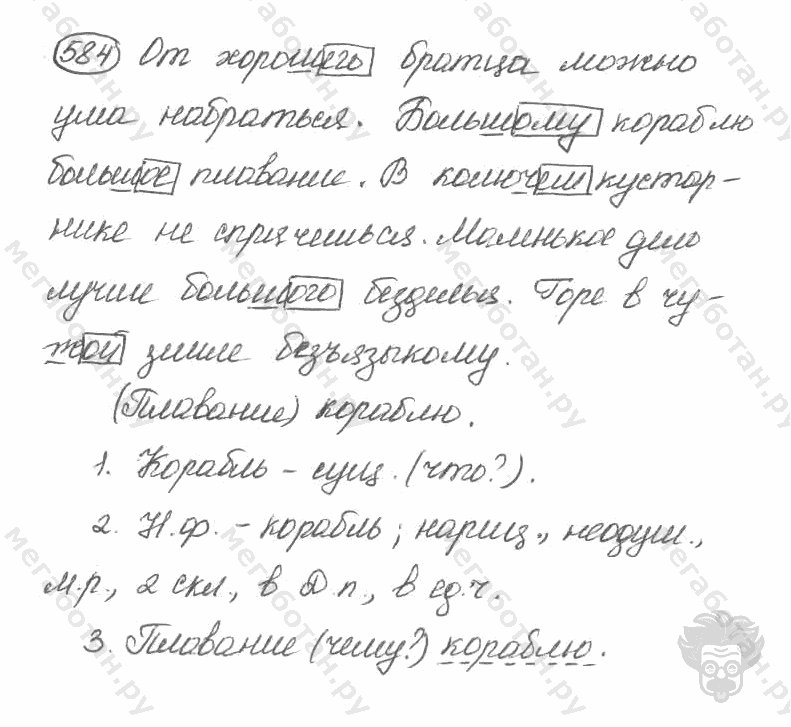 584 От хорошего братца можно
ума набраться. Большому кораблю
большое плавание. В колючем кустар-
нике не спрячешься. Маленькое дело
лучше большого безделья. Горе в чу-
жой земле безъязыкому.
(Плавание) кораблю.
1. Корабль – сущ. (что?).
2. Н.ф. – корабль; нариц., неодуш.,
м.р., 2 скл., в Д.п., в ед.ч.
3. Плавание (чему?) кораблю.
мегаботан.ру